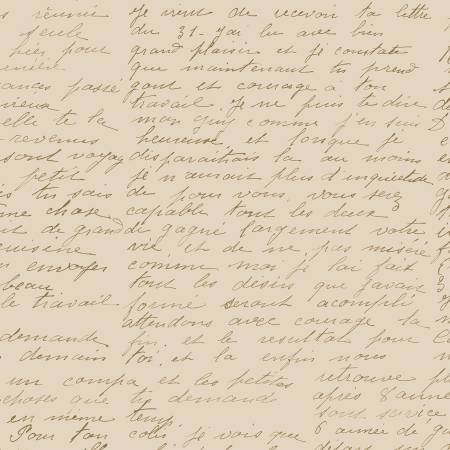 Je vient de recevoir ta lettre
du 31. jai lu avec bien
grand plaisir et je constate
que maintenant tu prend
gout et courage a ton
travail. Je ne puis te dire
mon guy comme j'en suis
heureuse, et lorsque je
disparaitrais la au moins
je n'aurait plus d'inquietude
de pour vous, vous serez
capable tout les deux
de gagné largement votre
vie et de ne pas misère
comme moi je lai fait
tout les désirs que javais
formé seront acomplie
attendons avec courage la
fin, et le resultat pour
toi, et la enfin nous
un compa et les petites
choses que tu demande
en même temp,
Pour ton colis, je vois que
réunie
pour
passé
elle te la
revenus
sont voyag
petit
tu sais
une chose
de grand
cuisine
envoyer
beau
le travail
demande
demain
retrouve
après 8 anne
sont service
6 année de